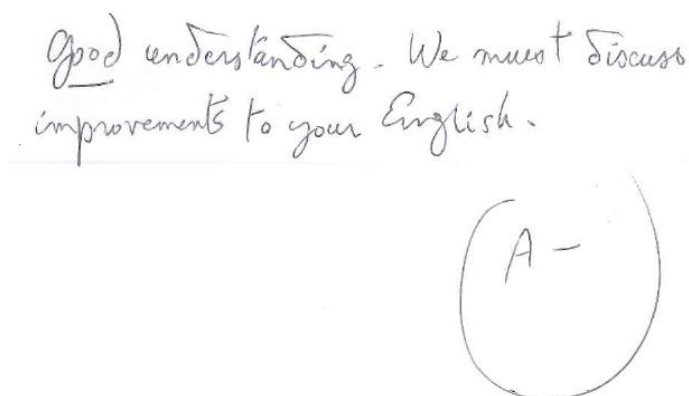 Good understanding. We must discuss
improvements to your English.
A -